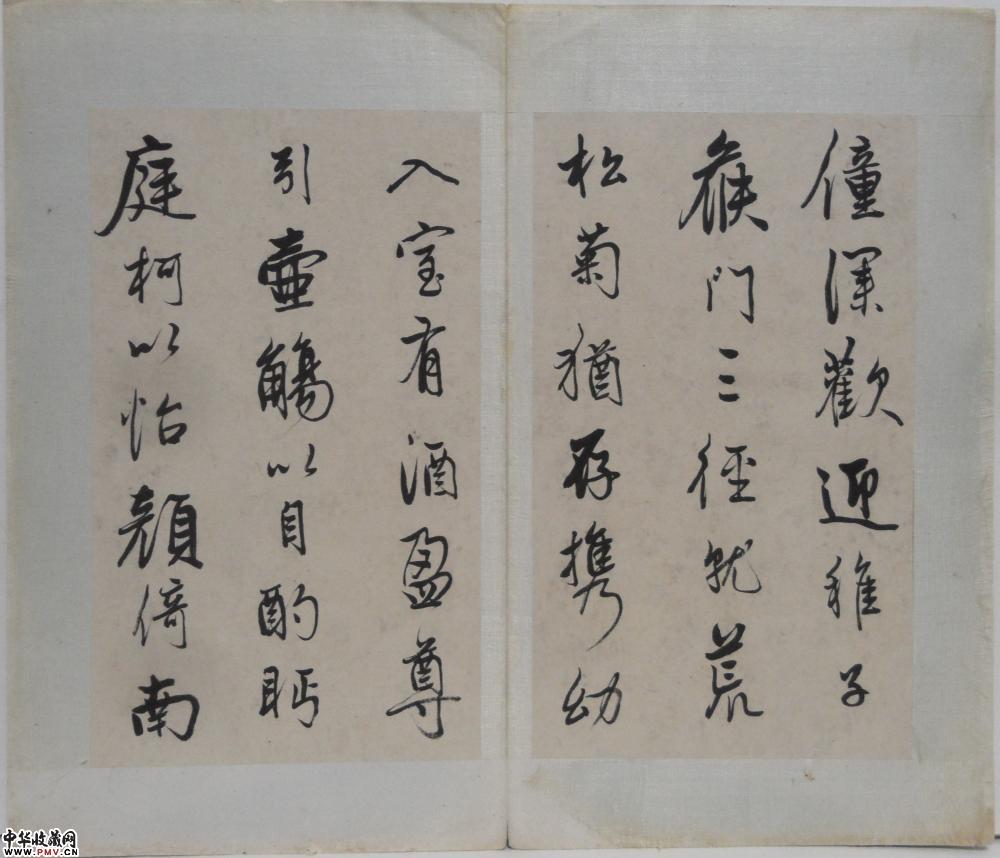 僮僕歡迎稚子
候門三徑就荒
松菊猶存携幼
入室有酒盈尊
引壺觴以自酌眄
庭柯以怡顏倚南
中华收藏网
WWW.PMV.CN